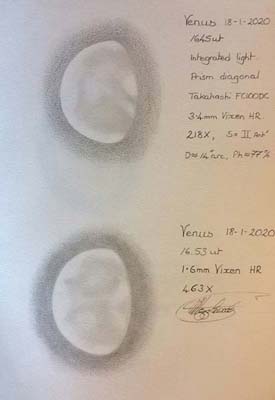 Venus 18-1-2020
16.45ut
Integrated light
Prism diagonal
Takahashi FC100DC
3.4mm Vixen HR.
218X, S= II Antⁱ
D=14"arc, Ph=77%
Venus 18-1-2020
16.53ut
1.6mm Vixen HR
463X